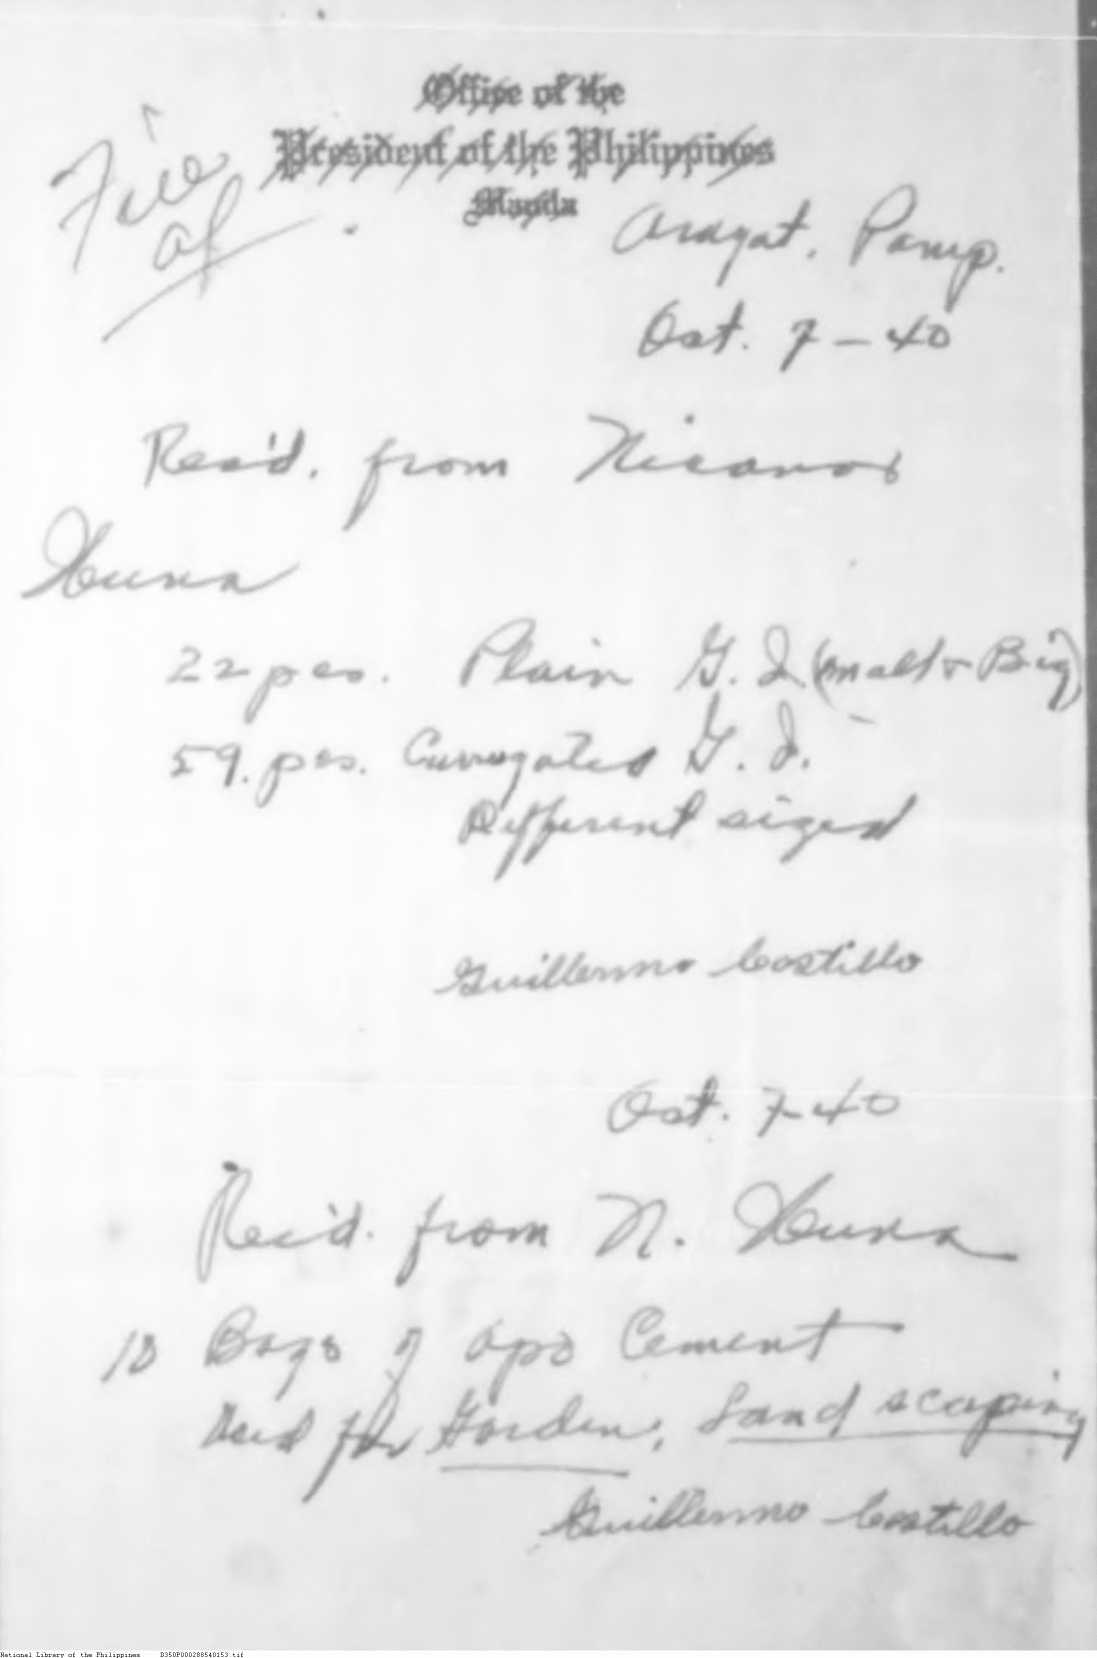 Office of the
President of the Philippines
Manila
File
Arayat, Pamp.
Oct. 7-40
Rec'd. from Nicanor
Luna
22 pcs. Plain G. I. (small & Big)
59. pcs. Currogated G. I.
Different sized
Guillermo Costillo
Oct. 7-40
Rec'd. from N. Luna
18 Bags of Apo Cement
Used for Garden, Landscaping
Guillermo Costillo
National Library of the Philippines D350P000288540153.tif